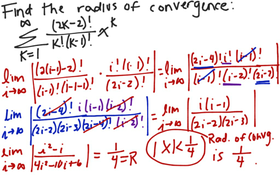 Find the radius of convergence:
∞ Σ K=1 (2K-2)! / K!(K-1)! x^K
lim i→∞ | (2(i-1)-2)! / (i-1)!(i-1-1)! · i!(i-1)! / (2i-2)! | = lim i→∞ | (2i-4)! i! (i-1)! / (i-1)! (i-2)! (2i-2)! |
lim i→∞ | (2i-4)! i (i-1)! (i-1)(i-2)! / (2i-2)(2i-3)(2i-4)! (i-1)! (i-2)! | = lim i→∞ | i(i-1) / (2i-2)(2i-3) |
lim i→∞ | i²-i / 4i²-10i+6 | = 1/4 = R |x| < 1/4 Rad. of Conv. is 1/4.